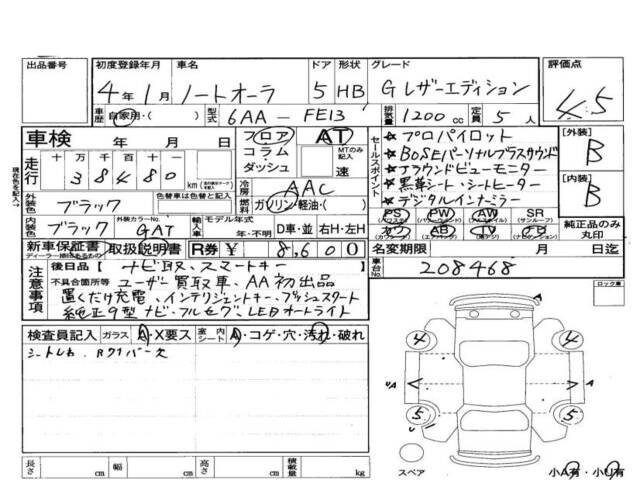 出品番号 初度登録年月 車名 ドア 形状 グレード 評価点
4年1月 ノートオーラ 5 HB Gレザーエディション 4.5
車歴 自家用・( ) 型式 6AA-FE13 排気量 1200cc 定員 5人
車検 年 月 日 フロア コラム ダッシュ AT MTのみ記入 速
セールスポイント
★プロパイロット
★BOSEパーソナルプラスサウンド
★アラウンドビューモニター
★黒革シート・シートヒーター
★デジタルインナーミラー
[外装] B
[内装] B
走行 十万 千百十 38480 km
冷房 AAC
燃料 ガソリン・軽油・( )
外装色 ブラック 色替車は色替と記入
内装色 ブラック 外装カラーNo. GAT 輸入車 モデル年式 年・不明 D車・並 右H・左H
PS PW AW SR
(パワステ) (サンルーフ)
カワ AB TV ナビ
純正品のみ丸印
新車保証書 取扱説明書 R券 ¥ 8,600 名変期限 月 日迄
車台No. 208468
注意事項
後日品[ ナビ取、スマートキー ]
不具合箇所等 ユーザー買取車、AA初出品
置くだけ充電、インテリジェントキー・プッシュスタート
純正9型ナビ・フルセグ LEDオートライト
検査員記入 ガラス A・X要ス 室内シート A・コゲ・穴・汚れ・破れ
ロック車
4 4
A A
5 5
U
長さ cm 幅 cm 高さ cm 積載量 kg
スペア 小A有・小U有
現在色を記入